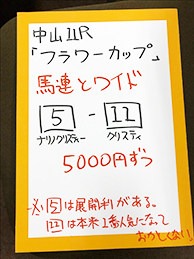 中山11R
「フラワーカップ」
馬連とワイド
5 - 11
ナリノクリスティー クリスティ
5000円ずつ
※5は展開利がある。
11は本来1番人気になって
おかしくない